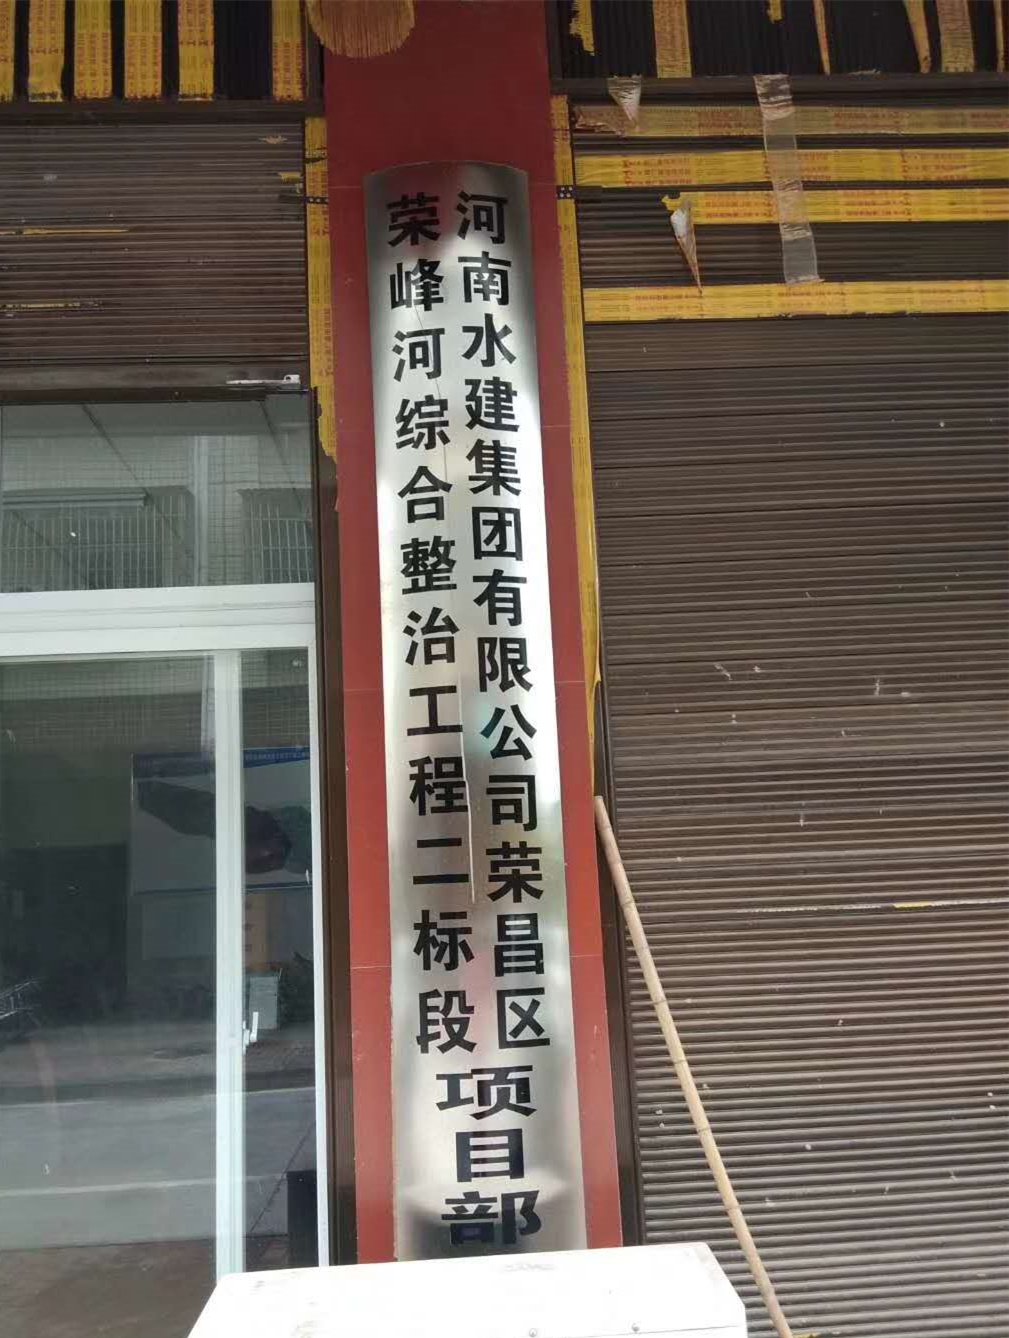 河南水建集团有限公司荣昌区
荣峰河综合整治工程二标段
项目部